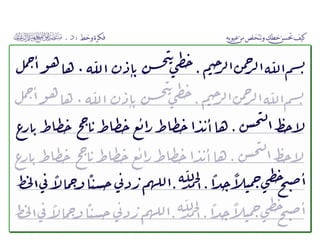 كيف تحسن خطك وتتخلص من عيوبه فكرة وخط : د .
بسم الله الرحمن الرحيم . خطي يتحسن بإذن الله . ها هو أجمل
بسم الله الرحمن الرحيم . خطي يتحسن بإذن الله . ها هو أجمل
لاحظ التحسن . ها أنذا خطاط رائع خطاط ناجح خطاط بارع
لاحظ التحسن . ها أنذا خطاط رائع خطاط ناجح خطاط بارع
أصبح خطي جميلاً جداً . الحمد لله . اللهم زدني حسناً وجمالاً في الخط
أصبح خطي جميلاً جداً . الحمد لله . اللهم زدني حسناً وجمالاً في الخط